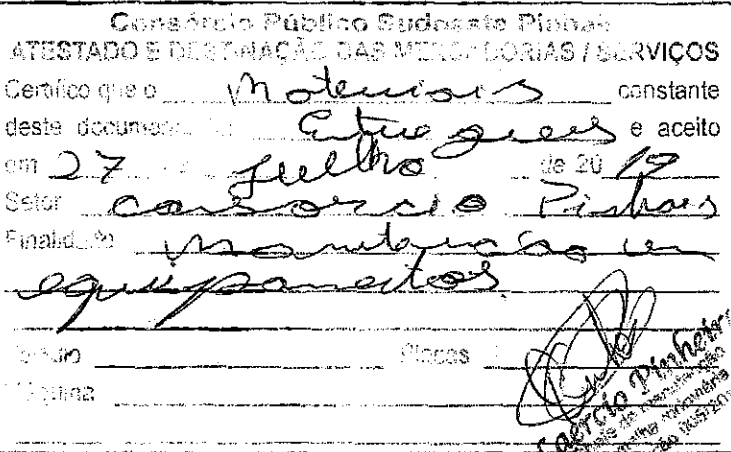 Consórcio Público Sudoeste Pinhais
ATESTADO E DESTINAÇÃO DAS MERCADORIAS / SERVIÇOS
Certifico que o Materiais constante
deste documento Entregues e aceito
em 27 Julho de 20 19
Setor consorcio Pinhais
Finalidade Manutenção em
equipamentos
Placas
Máquina
Laercio Pinheiro
de manutenção
malha rodoviária